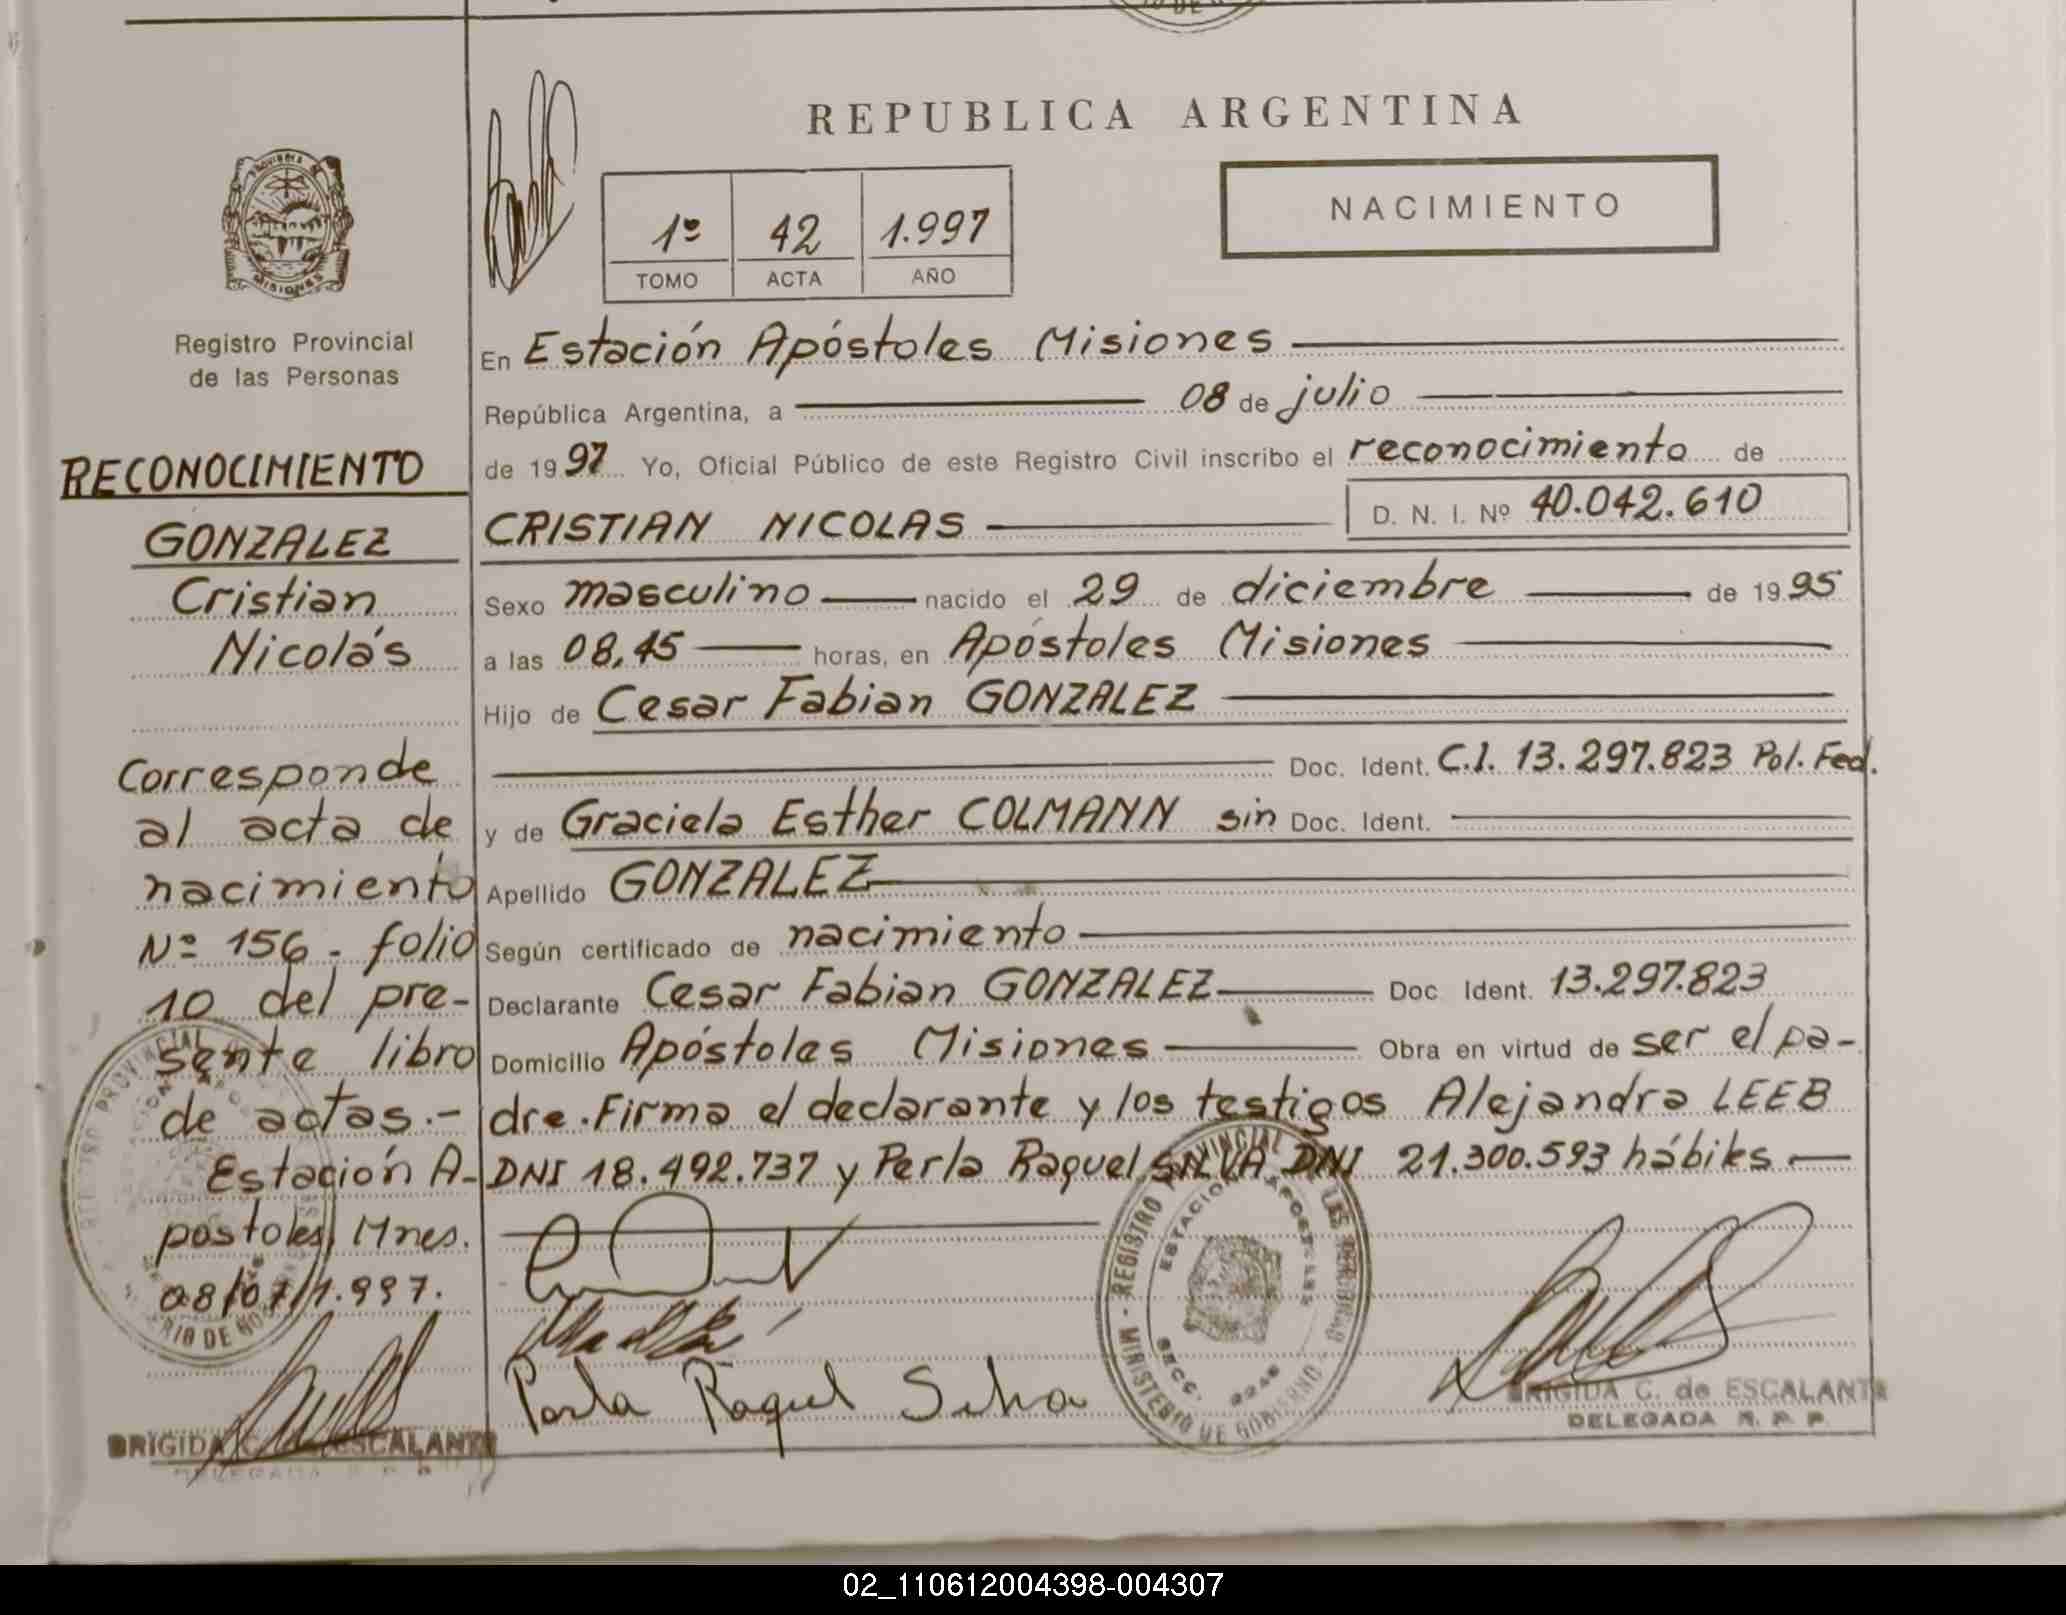 REPUBLICA ARGENTINA
NACIMIENTO
1º 42 1.997
TOMO ACTA AÑO
PROVINCIA
MISIONES
Registro Provincial
de las Personas
RECONOCIMIENTO
GONZALEZ
Cristian
Nicolás
Corresponde
al acta de
nacimiento
Nº 156 - folio
10 del pre-
sente libro
de actas.-
Estación A-
postoles, Mnes.
08/07/1.997.
BRIGIDA C. de ESCALANTE
DELEGADA R. P. P.
En Estación Apóstoles Misiones
República Argentina, a 08 de julio
de 1997 Yo, Oficial Público de este Registro Civil inscribo el reconocimiento de
CRISTIAN NICOLAS D. N. I. Nº 40.042.610
Sexo masculino nacido el 29 de diciembre de 1995
a las 08,45 horas, en Apóstoles Misiones
Hijo de Cesar Fabian GONZALEZ
Doc. Ident. C.I. 13.297.823 Pol. Fed.
y de Graciela Esther COLMANN sin Doc. Ident.
Apellido GONZALEZ
Según certificado de nacimiento
Declarante Cesar Fabian GONZALEZ Doc Ident. 13.297.823
Domicilio Apóstoles Misiones Obra en virtud de ser el pa-
dre. Firma el declarante y los testigos Alejandra LEEB
DNI 18.492.737 y Perla Raquel SILVA DNI 21.300.593 hábiles
Perla Raquel Silva
REGISTRO PROVINCIAL DE LAS PERSONAS
MINISTERIO DE GOBIERNO
ESTACION APOSTOLES
SECC. 2246
BRIGIDA C. de ESCALANTE
DELEGADA R. P. P.
02_110612004398-004307